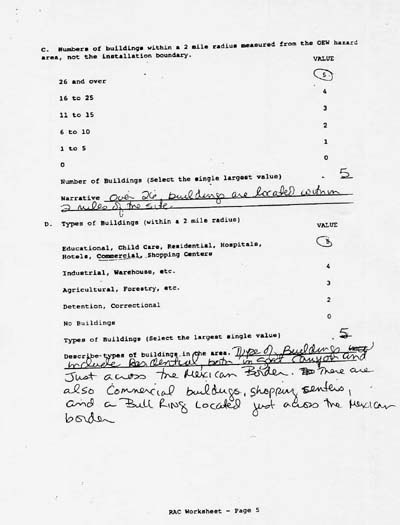 C. Numbers of buildings within a 2 mile radius measured from the OEW hazard
area, not the installation boundary.
VALUE
26 and over 5
16 to 25 4
11 to 15 3
6 to 10 2
1 to 5 1
0 0
Number of Buildings (Select the single largest value) - 5
Narrative Over 26 buildings are located within
2 miles of the site.
D. Types of Buildings (within a 2 mile radius)
VALUE
Educational, Child Care, Residential, Hospitals, 5
Hotels, Commercial, Shopping Centers
Industrial, Warehouse, etc. 4
Agricultural, Forestry, etc. 3
Detention, Correctional 2
No Buildings 0
Types of Buildings (Select the largest single value) 5
Describe types of buildings in the area. Type of Buildings
include Residential, both in Goat Canyon and
Just across the Mexican Border. There are
also Commercial buildings, shopping centers,
and a Bull Ring Located just across the Mexican
border
RAC Worksheet - Page 5